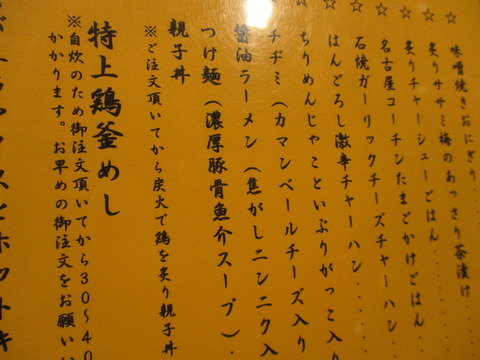 味噌焼きおにぎり・・・・
☆ 炙りササミ梅のあっさり茶漬け・・
☆ 炙りチャーシューごはん・・・・
☆ 名古屋コーチンたまごかけごはん・・
☆ 石焼ガーリックチーズチャーハン・
☆ はんごろし激辛チャーハン・・・・
☆ ちりめんじゃこといぶりがっこ入り
チヂミ（カマンベールチーズ入り
醤油ラーメン（焦がしニンニク入
つけ麺（濃厚豚骨魚介スープ）・
親子丼
※ご注文頂いてから炭火で鶏を炙り親子丼
特上鶏釜めし
※自炊のため御注文頂いてから３０〜４０
かかります。お早めの御注文をお願いい